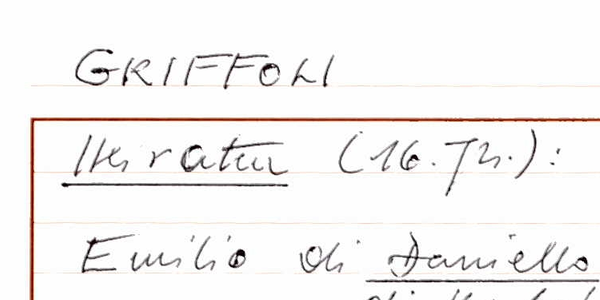 GRIFFOLI
Literatur (16. Jh.):
Emilio di Daniello